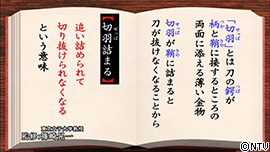 「切羽」とは刀の鍔が
柄と鞘に接するところの
両面に添える薄い金物
切羽が鞘に詰まると
刀が抜けなくなることから
【切羽詰まる】
追い詰められて
切り抜けられなくなる
という意味
©NTV